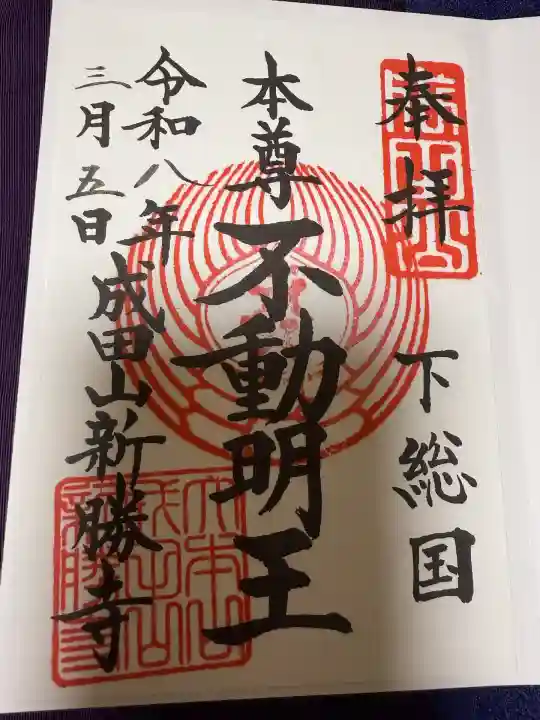 奉拝
下総国
本尊 不動明王
令和八年
三月五日
成田山新勝寺
大本山
成田山
新勝寺